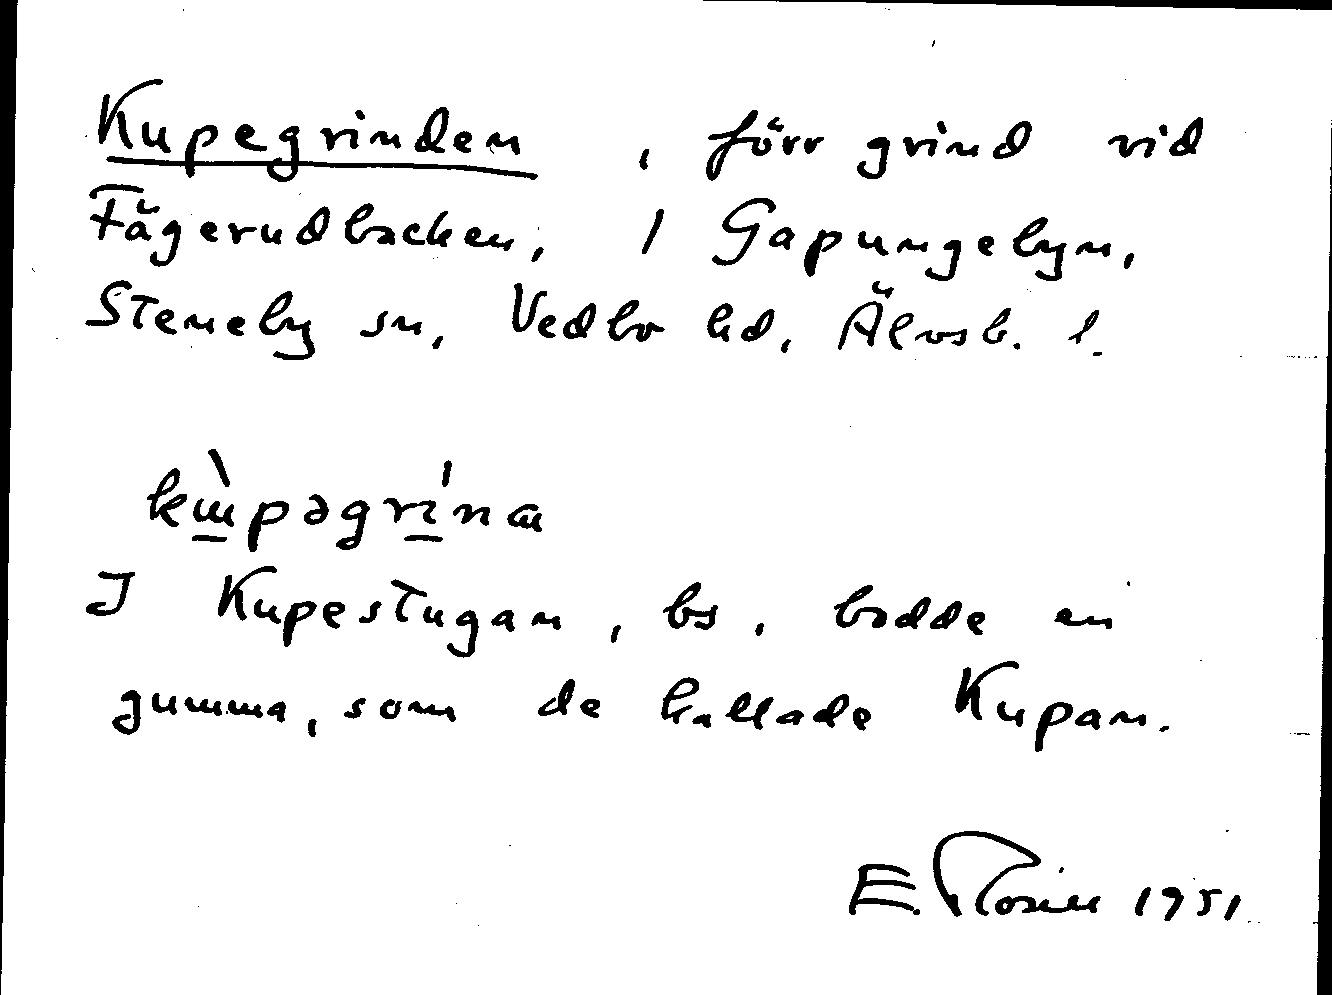 Kupegrinden, förr grind vid
Fågerudbacken, 1 Gapungebyn,
Steneby sn, Vedbo hd, Älvsb. l.
I Kupestugan, bs, bodde en
gumma, som de kallade Kupan.
E. Rosin 1951